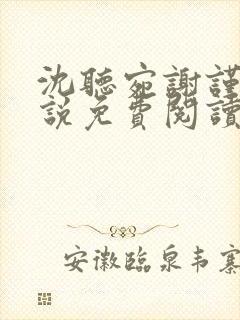 沈聽宛謝謹
說免費閱讀
安徽臨泉韦寨